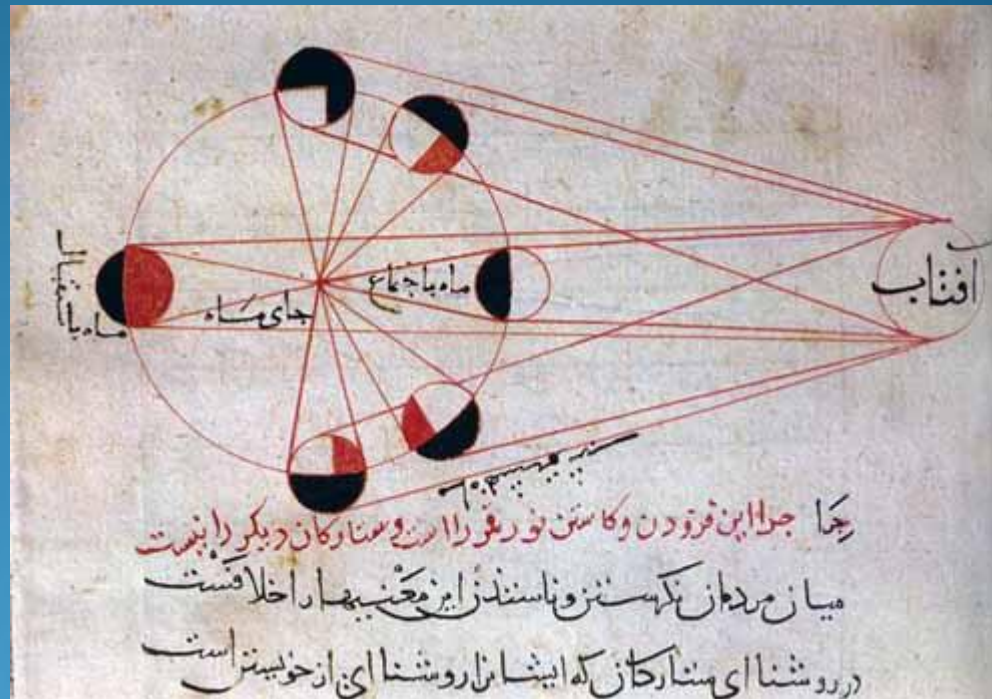 افتاب
ماه باجتماع
جای ماه
ماه باستقبال
چرا این فزودن و کاستن نور قمر را است و ستارکان دیکر را نیست
میان مردمان نکرستن و ناستدن این معنیها را خلافست
در روشنای ستارکان که ایشانرا روشنای از خویستن است